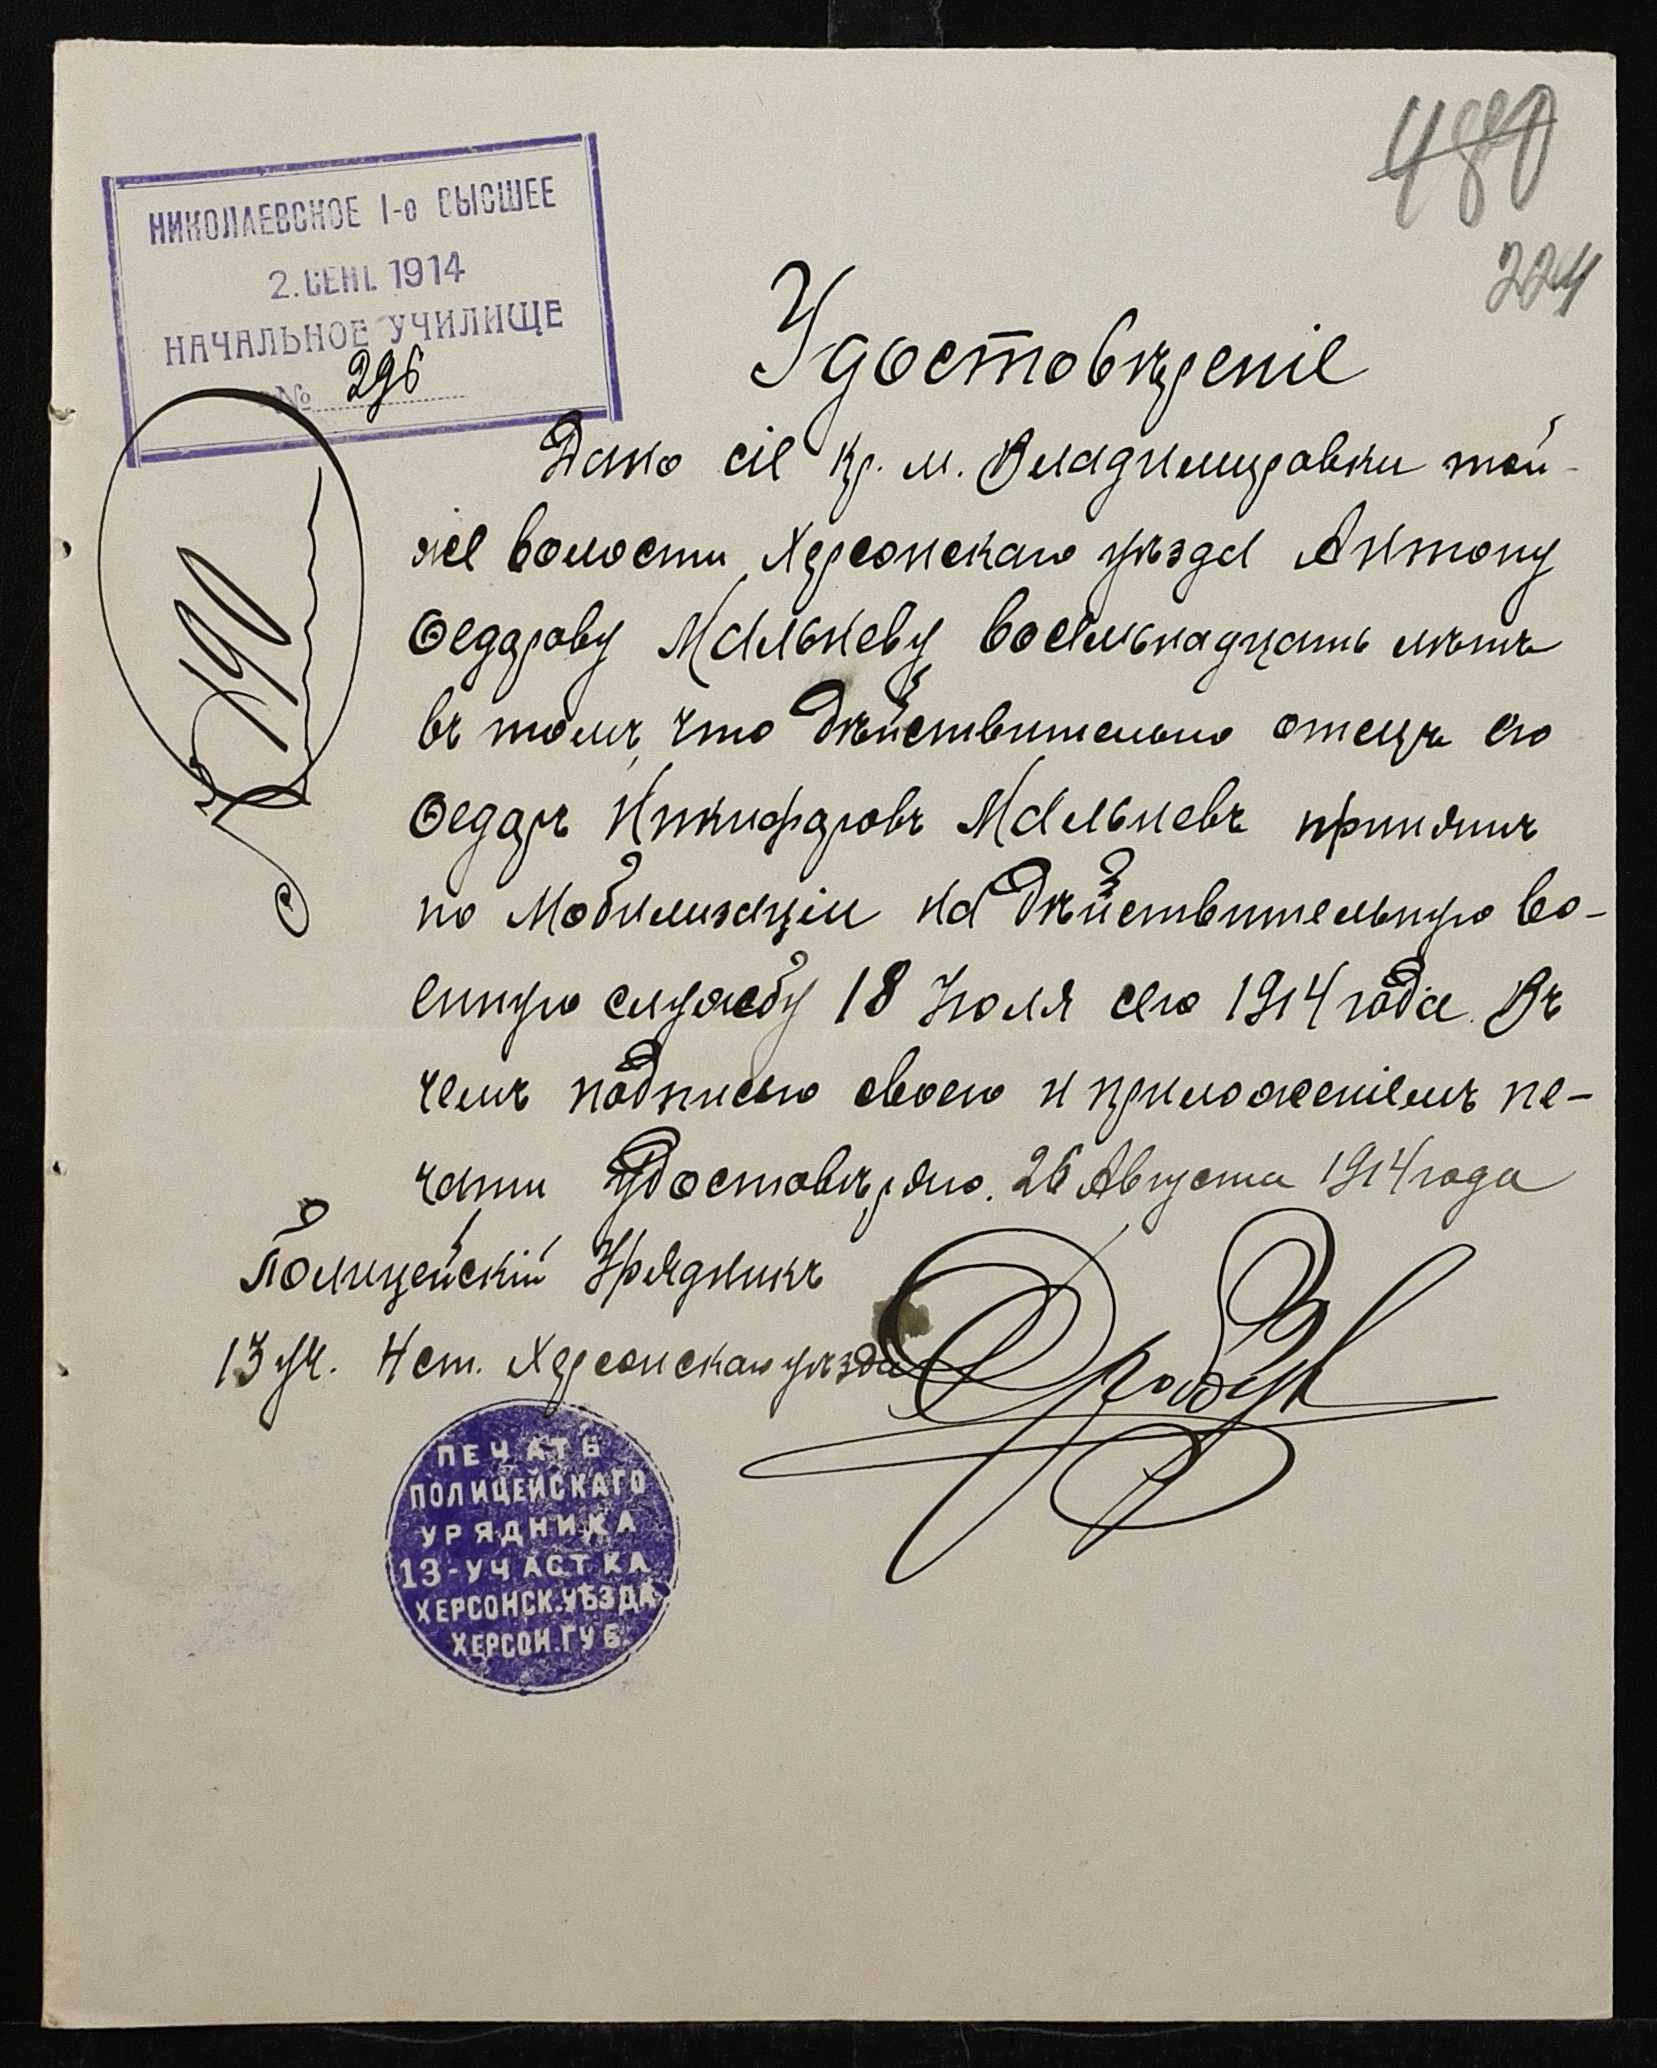 480
224
НИКОЛАЕВСКОЕ 1-е ВЫСШЕЕ
2. СЕНТ. 1914
НАЧАЛЬНОЕ УЧИЛИЩЕ
№ 296
Удостовѣреніе
Дано сіе кр. м. Владимировки той-
же волости, Херсонскаго уѣзда Антону
Ѳедорову Мальневу восемьнадцать лѣтъ
въ томъ, что дѣйствительно отецъ его
Ѳедоръ Никифоровъ Мальневъ принятъ
по Мобилизаціи на дѣйствительную во-
енную службу 18 Іюля сего 1914 года. Въ
чемъ подписью своею и приложеніемъ пе-
чати удостовѣряю. 26 Августа 1914 года
Полицейскій Урядникъ
13 уч. 4 ст. Херсонскаго уѣзда
190
ПЕЧАТЬ
ПОЛИЦЕЙСКАГО
УРЯДНИКА
13-УЧАСТКА
ХЕРСОНСК. УѢЗДА
ХЕРСОН. ГУБ.